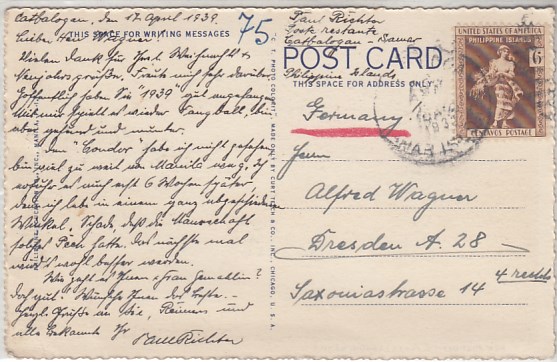 Catbalogan, den 17. April 1939.
Lieber Herr Wagner!
THIS SPACE FOR WRITING MESSAGES
75
Vielen Dank für Ihre Weihnachts &
Neujahrsgrüße. Freute mich sehr darüber
Hoffentlich haben Sie "1939" gut angefangen
Mit mir spielt es wieder Fangball, bin
aber gesund und munter.
Den "Condor" habe ich nicht gesehen
bin viel zu weit von Manila weg. Ich
erfuhr es mich erst 6 Wochen später,
denn ich lebe in einem ganz abgeschiedenen
Winkel. Schade daß die Mannschaft
solches Pech hatte. Das nächste mal
wird's wohl besser werden.
Wie geht es Ihnen & Frau Gemahlin?
Doch gut! Wünsche Ihnen das Beste.-
Herzl. Grüße an Sie, und
alle Bekannte Ihr
Paul Richter
C. T. PHOTO COLORIT" MADE ONLY BY CURT TEICH & CO., INC., CHICAGO, U. S. A.
Paul Richter
Post restante
Catbalogan - Samar
POST CARD
Philippine Islands
THIS SPACE FOR ADDRESS ONLY
Germany
Herrn
Alfred Wagner
Dresden A. 28
4 rechts
Saxoniastrasse 14
UNITED STATES OF AMERICA
PHILIPPINE ISLANDS
6
CENTAVOS POSTAGE